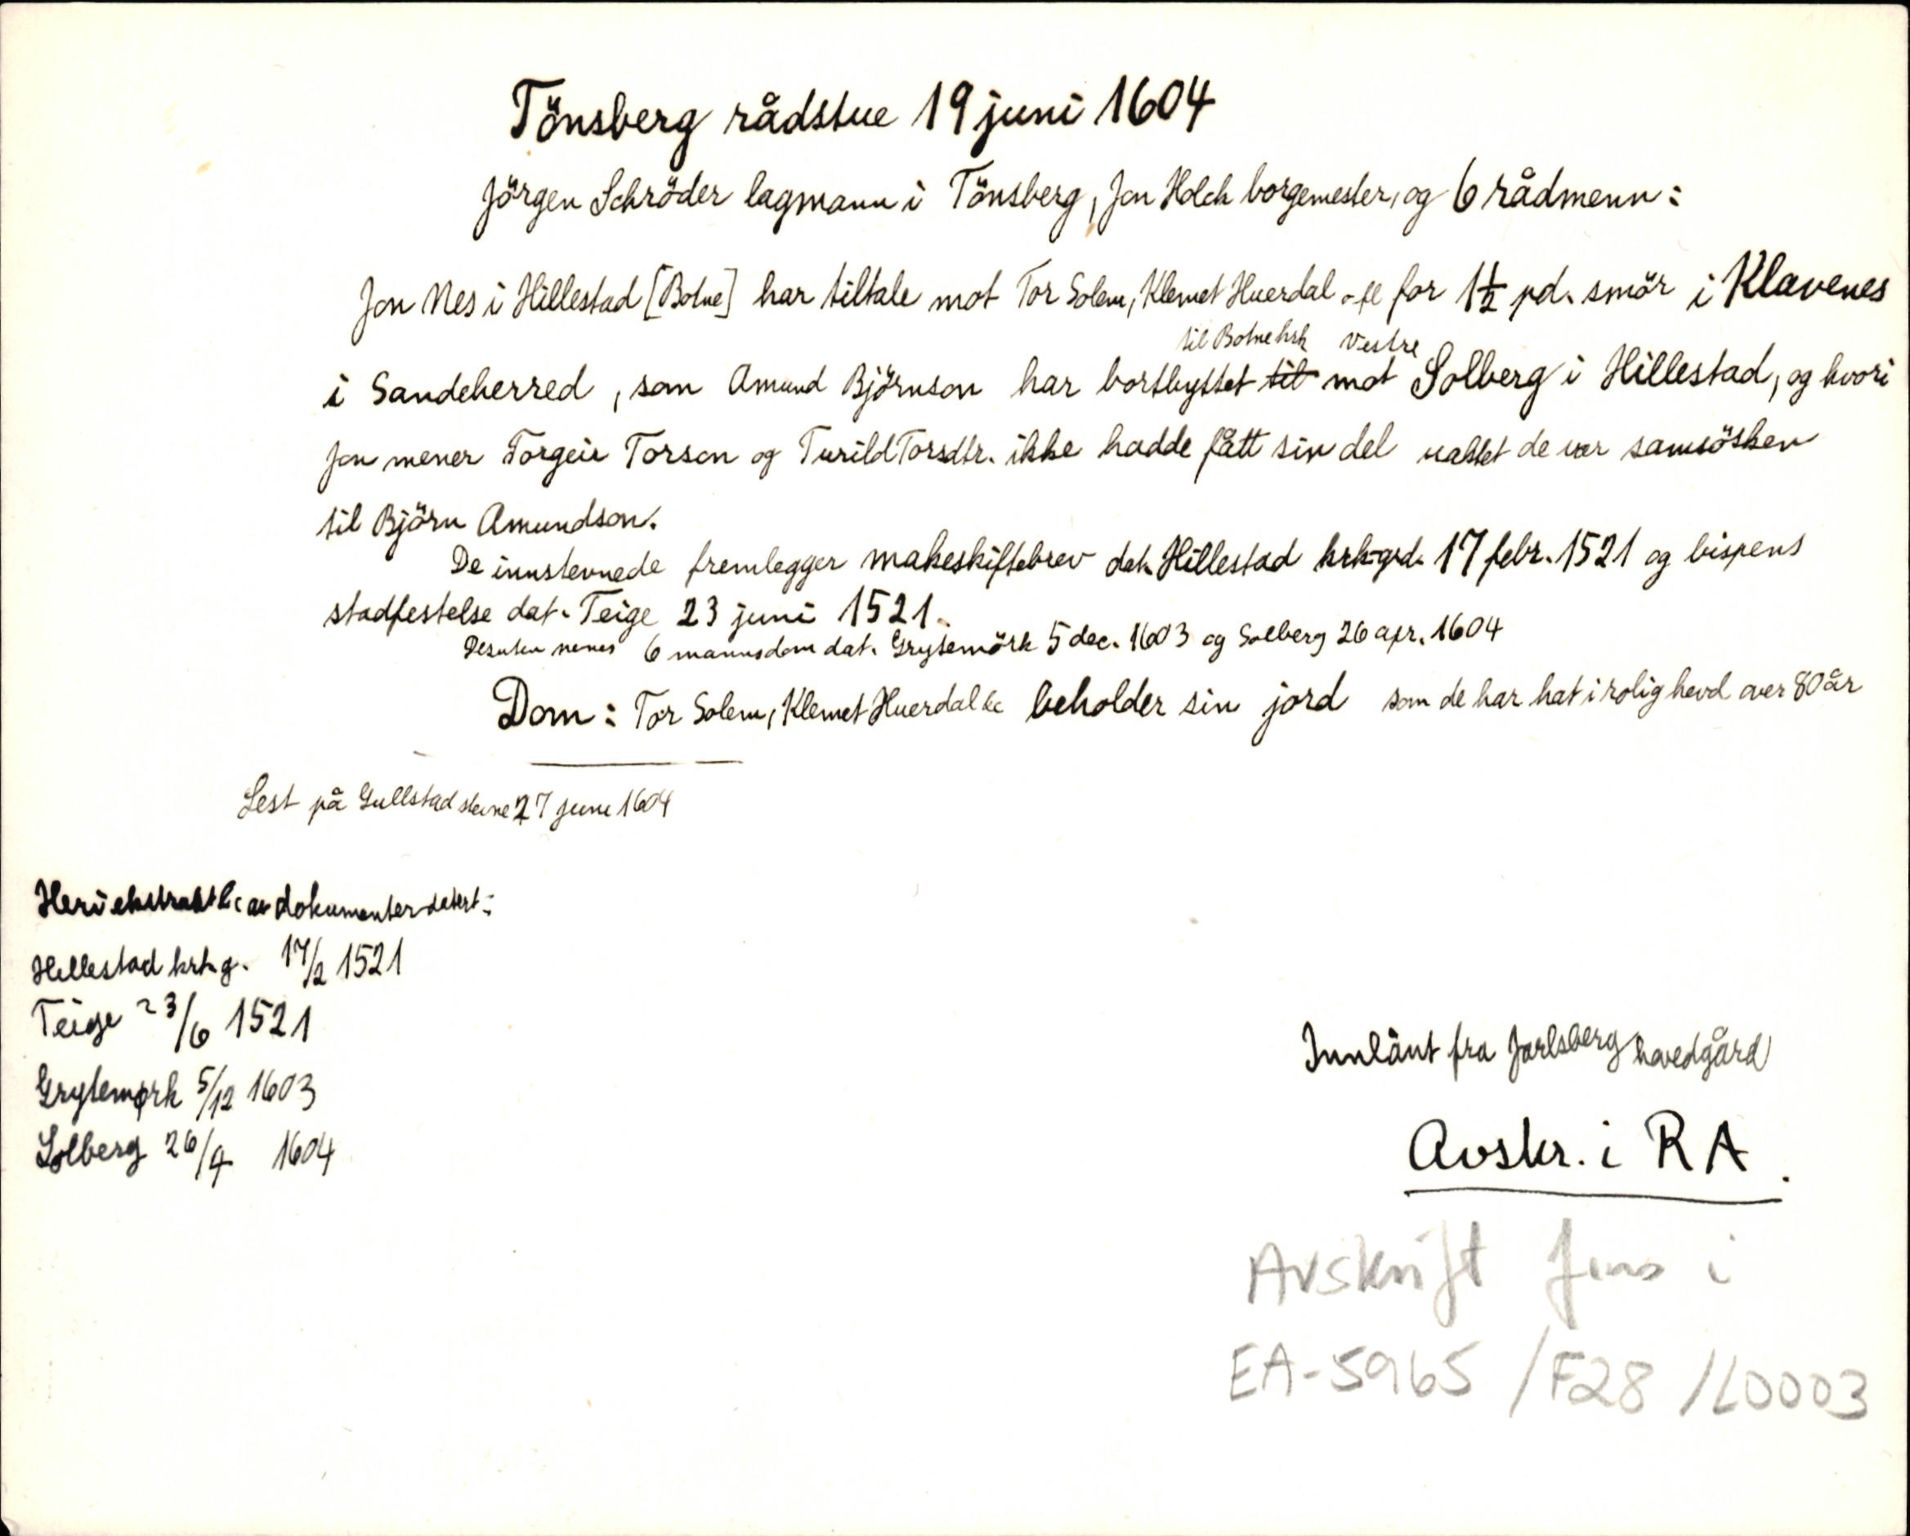 Tönsberg rådstue 19 juni 1604
Jörgen Schröder lagmann i Tönsberg, Jon Holck borgemester, og 6 rådmenn:
Jon Nes i Hillestad [Botne] har tiltale mot Tor Solem, Klemet Huerdal o fl for 1½ pd. smör i Klavenes
til Botne krk Vestre
i Sandeherred, som Amund Björnson har bortbyttet til mot Solberg i Hillestad, og hvori
Jon mener Torgeir Torson og Turild Torsdtr. ikke hadde fått sin del uaktet de var samsösken
til Björn Amundson.
De innstevnede fremlegger makeskiftebrev dat. Hillestad krk.grd. 17 febr. 1521 og bispens
stadfestelse dat. Teige 23 juni 1521.
Desuten nevnes 6 mannsdom dat. Grytemörk 5 dec. 1603 og Solberg 26 apr. 1604
Dom: Tor Solem, Klemet Huerdal &c beholder sin jord som de har hat i rolig hevd over 80 år
Lest på Gullstad stevne 27 juni 1604
Heri ekstrakt &c av dokumenter datert:
Hillestad krk.g. 17/2 1521
Teige 23/6 1521
Grytemørk 5/12 1603
Solberg 26/4 1604
Innlånt fra Jarlsberg hovedgård
Avskr. i RA.
Avskrift fins i
EA-5965/F28/L0003